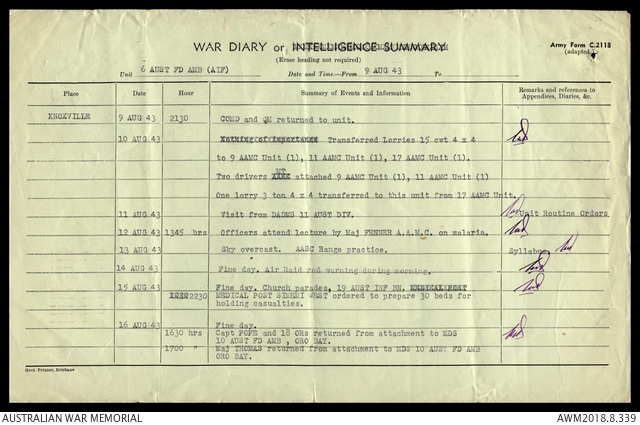 WAR DIARY or INTELLIGENCE SUMMARY
(Erase heading not required)
Army Form C.2118
(adapted)
Unit 6 AUST FD AMB (AIF) Date and Time—From 9 AUG 43 To
Place Date Hour Summary of Events and Information Remarks and references to Appendices, Diaries, &c.
KNOXVILLE 9 AUG 43 2130 COMD and QM returned to unit.
10 AUG 43 Nothing of importance Transferred Lorries 15 cwt 4 x 4
to 9 AAMC Unit (1), 11 AAMC Unit (1), 17 AAMC Unit (1).
Two drivers attached 9 AAMC Unit (1), 11 AAMC Unit (1)
One lorry 3 ton 4 x 4 transferred to this unit from 17 AAMC Unit.
11 AUG 43 Visit from DADMS 11 AUST DIV. Unit Routine Orders
12 AUG 43 1345 hrs Officers attend lecture by Maj FENNER A.A.M.C. on malaria.
13 AUG 43 Sky overcast. AASC Range practice. Syllabus
14 AUG 43 Fine day. Air Raid red warning during morning.
15 AUG 43 Fine day. Church parades, 19 AUST INF BN. MEDICAL POST
2230 MEDICAL POST SINEMI WEST ordered to prepare 30 beds for
holding casualties.
16 AUG 43 Fine day.
1630 hrs Capt POPE and 18 ORs returned from attachment to MDS
10 AUST FD AMB , ORO BAY.
1700 " Maj THOMAS returned from attachment to MDS 10 AUST FD AMB
ORO BAY.
Govt. Printer, Brisbane
AUSTRALIAN WAR MEMORIAL AWM2018.8.339